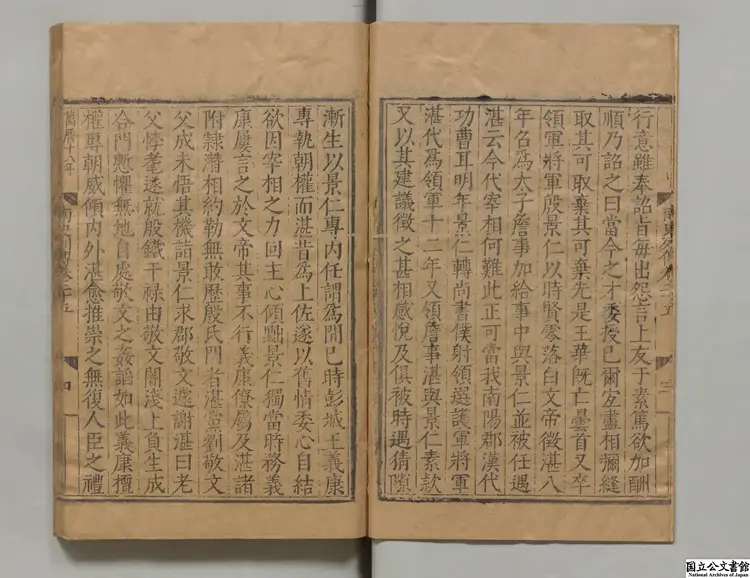 行意雖奉詔旨每出怨言上友于素篤欲加酬
順乃詔之曰當今之才委授已爾宜盡相彌縫
取其可取棄其可棄先是王華旣亡曇首又卒
領軍將軍殷景仁以時賢零落白文帝徵湛八
年名爲太子詹事加給事中與景仁並被任遇
湛云今代宰相何難此正可當我南陽郡漢代
功曹耳明年景仁轉尚書僕射領選護軍將軍
湛代爲領軍十二年又領詹事湛與景仁素款
又以其建議徵之甚相感悅及俱被時遇猜隙
漸生以景仁專內任謂爲間已時彭城王義康
專執朝權而湛昔爲上佐遂以舊情委心自結
欲因宰相之力回主心傾黜景仁獨當時務義
康屢言之於文帝其事不行義康僚屬及湛諸
附隸潛相約勒無敢歷殷氏門者湛黨劉敬文
父成未悟其機詣景仁求郡敬文遽謝湛曰老
父悖耄遂就殷鐵干祿由敬文闇淺上負生成
合門慙懼無地自處敬文之姦諂如此義康擅
權專朝威傾內外湛愈推崇之無復人臣之禮
萬曆十八年
四
国立公文書館
National Archives of Japan